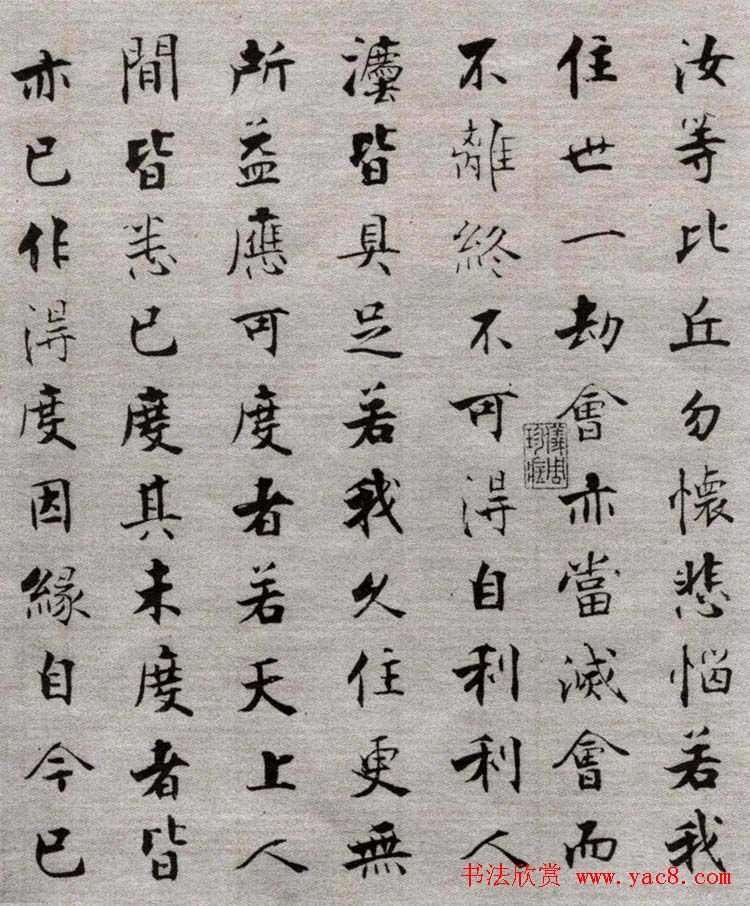 汝等比丘勿懷悲惱若我
住世一劫會亦當滅會而
不離終不可得自利利人
灋皆具足若我久住更無
所益應可度者若天上人
間皆悉已度其未度者皆
亦已作得度因緣自今已
书法欣赏 www.yac8.com